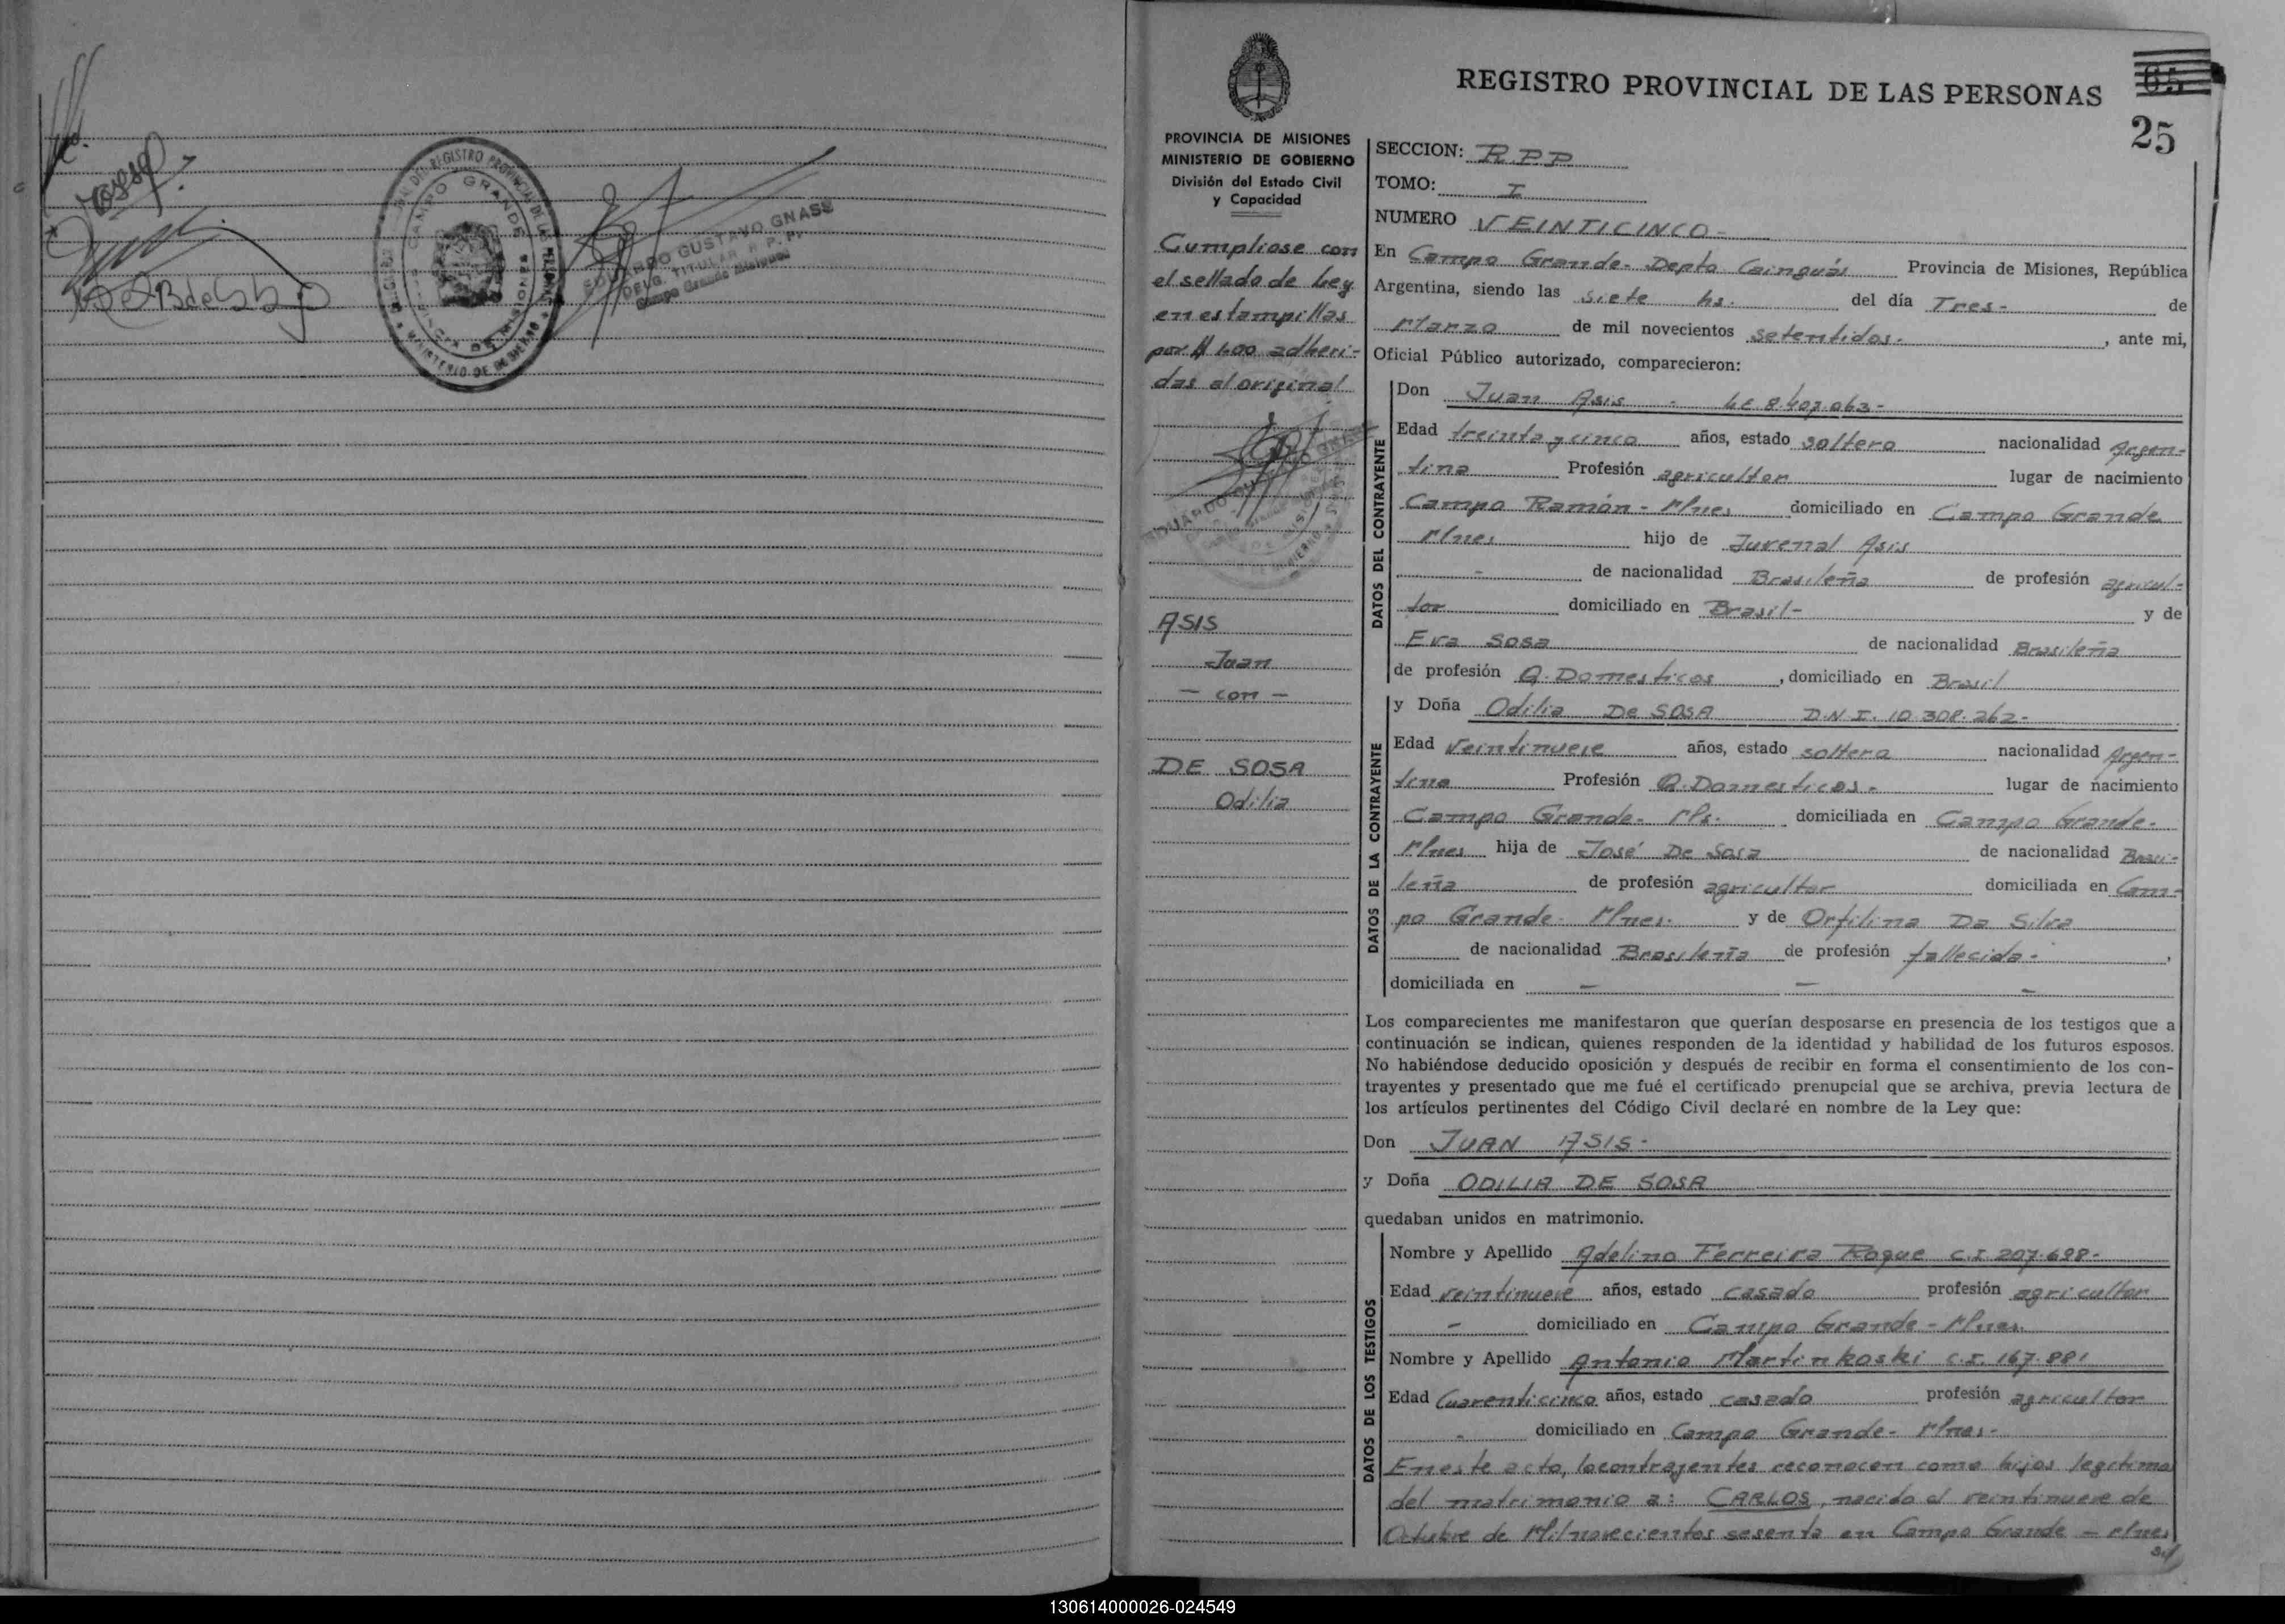 REGISTRO PROVINCIAL DE LAS PERSONAS
65
25
PROVINCIA DE MISIONES
MINISTERIO DE GOBIERNO
División del Estado Civil
y Capacidad
Cumpliose con
el sellado de Ley
en estampillas
por $ 400 adheri-
das al original
ASIS
Juan
- con -
DE SOSA
Odilia
SECCION: RPP
TOMO: I
NUMERO VEINTICINCO-
En Campo Grande- Depto Cainguás Provincia de Misiones, República
Argentina, siendo las siete hs. del día Tres- de
Marzo de mil novecientos setentidos- , ante mi,
Oficial Público autorizado, comparecieron:
DATOS DEL CONTRAYENTE
Don Juan Asis - LE 8.407.063-
Edad treinta y cinco años, estado soltero nacionalidad Argen-
tina Profesión agricultor lugar de nacimiento
Campo Ramón - Mnes domiciliado en Campo Grande
Mnes hijo de Juvenal Asis
- de nacionalidad Brasileña de profesión agricul-
tor domiciliado en Brasil- y de
Eva Sosa de nacionalidad Brasileña
de profesión Q. Domesticos , domiciliado en Brasil
DATOS DE LA CONTRAYENTE
y Doña Odilia De SOSA D.N.I. 10.308.262-
Edad Veintinueve años, estado soltera nacionalidad Argen-
tina Profesión Q. Domesticos- lugar de nacimiento
Campo Grande- Ms- domiciliada en Campo Grande-
Mnes hija de José De Sosa de nacionalidad Brasi-
leña de profesión agricultor domiciliada en Cam-
po Grande- Mnes- y de Orfilina Da Silva
de nacionalidad Brasileña de profesión fallecida- ,
domiciliada en - - -
Los comparecientes me manifestaron que querían desposarse en presencia de los testigos que a
continuación se indican, quienes responden de la identidad y habilidad de los futuros esposos.
No habiéndose deducido oposición y después de recibir en forma el consentimiento de los con-
trayentes y presentado que me fué el certificado prenupcial que se archiva, previa lectura de
los artículos pertinentes del Código Civil declaré en nombre de la Ley que:
Don JUAN ASIS-
y Doña ODILIA DE SOSA
quedaban unidos en matrimonio.
DATOS DE LOS TESTIGOS
Nombre y Apellido Adelino Ferreira Roque C.I. 207.698-
Edad veintinueve años, estado casado profesión agricultor
- domiciliado en Campo Grande - Mnes.
Nombre y Apellido Antonio Martinkoski C.I. 167.881
Edad Cuarenticinco años, estado casado profesión agricultor
- domiciliado en Campo Grande- Mnes-
En este acto, locontrayentes reconocen como hijos legitimo
del matrimonio a: CARLOS, nacido el veintinueve de
Octubre de Milnovecientos sesenta en Campo Grande - Mnes
EDUARDO GUSTAVO GNASS
DELG. TITULAR R. P. P.
Campo Grande Misiones
130614000026-024549